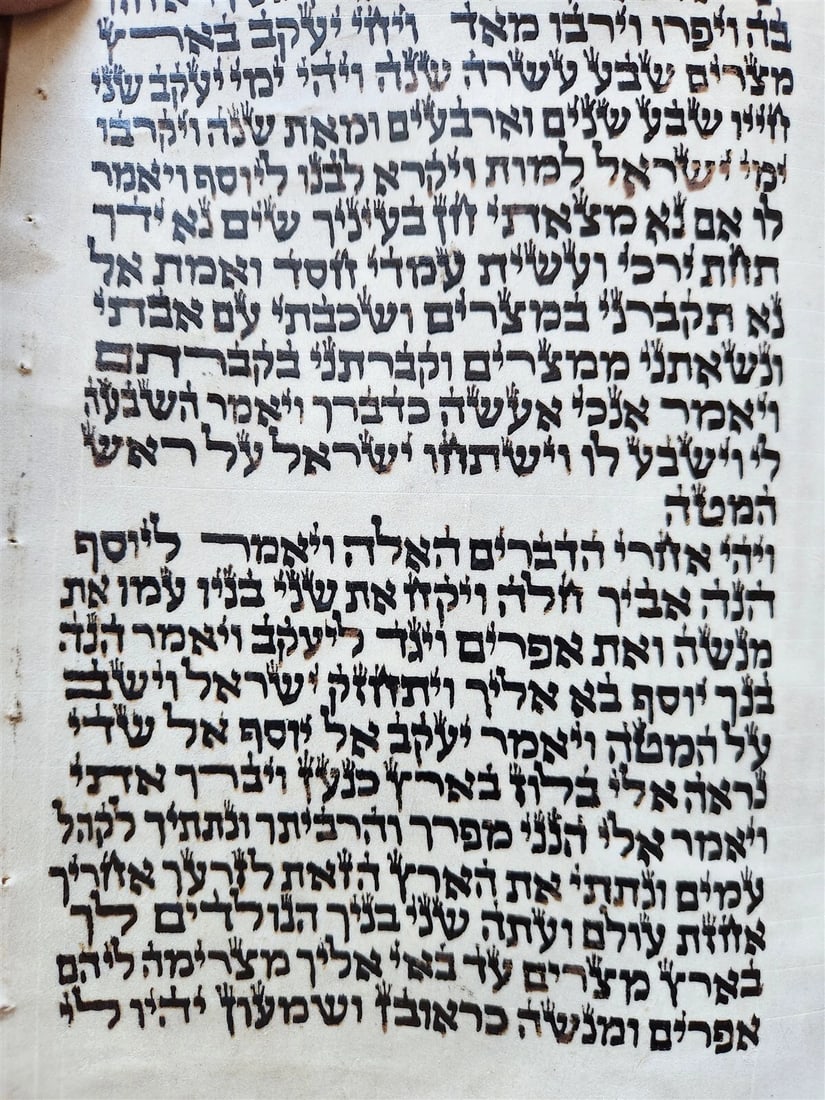 בה ויפרו וירבו מאד ויחי יעקב בארץ
מצרים שבע עשרה שנה ויהי ימי יעקב שני
חייו שבע שנים וארבעים ומאת שנה ויקרבו
ימי ישראל למות ויקרא לבנו ליוסף ויאמר
לו אם נא מצאתי חן בעיניך שים נא ידך
תחת ירכי ועשית עמדי חסד ואמת אל
נא תקברני במצרים ושכבתי עם אבתי
ונשאתני ממצרים וקברתני בקברתם
ויאמר אנכי אעשה כדברך ויאמר השבעה
לי וישבע לו וישתחו ישראל על ראש
המטה
ויהי אחרי הדברים האלה ויאמר ליוסף
הנה אביך חלה ויקח את שני בניו עמו את
מנשה ואת אפרים ויגד ליעקב ויאמר הנה
בנך יוסף בא אליך ויתחזק ישראל וישב
על המטה ויאמר יעקב אל יוסף אל שדי
נראה אלי בלוז בארץ כנען ויברך אתי
ויאמר אלי הנני מפרך והרביתך ונתתיך לקהל
עמים ונתתי את הארץ הזאת לזרעך אחריך
אחזת עולם ועתה שני בניך הנולדים לך
בארץ מצרים עד באי אליך מצרימה לי הם
אפרים ומנשה כראובן ושמעון יהיו לי